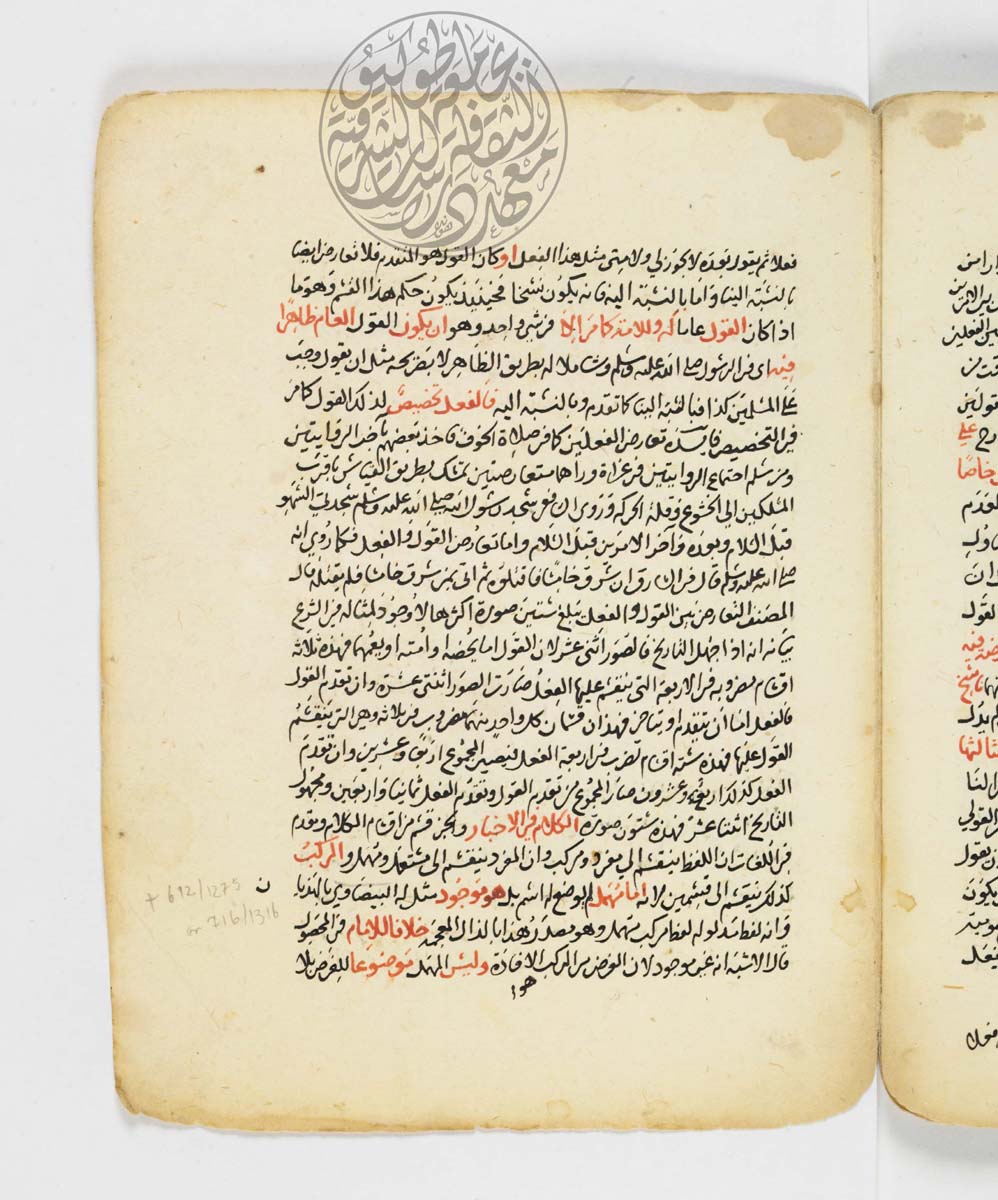 معهد دراسات الثقافة الشرقية
بجامعة طوكيو
فعلا ثم يقول بعده لا يجوز لي ولا متى مثل هذا الفعل او كان القول هو المتقدم فلا تعارض ايضا
بالنسبة الينا واما بالنسبة اليه فانه يكون نسخا فحينئذ يكون حكم هذا القسم وهو ما
اذا كان القول عاما له وللامة كما مر الا في شي واحد وهو ان يكون القول العام ظاهرا
فيه اي في الرسول صلى الله عليه وسلم وشاملا له بطريق الظاهر لا بصريحه مثل ان يقول وجب
على المسلمين كذا فبالنسبة الينا كما تقدم وبالنسبة اليه فالفعل تخصيص لذلك القول كما مر
في التخصيص فايدة تعارض الفعلين كما في صلاة الخوف فاخذ بعضهم باحد الروايتين
ومن سلم اجتماع الروايتين في غزاة وراهما متعارضتين تمسك بطريق القياس باقرب
المسلكين الي الخشوع وقلة الحركة وروي ان في سجد رسول الله صلى الله عليه وسلم سجدتي السهو
قبل السلام وبعده وآخر الامرين قبل السلام واما تعارض القول والفعل فكما روي انه
صلى الله عليه وسلم قال في السارق وان سرق خامسا فاقتلوه ثم اتي بمن سرق خامسا فلم يقتله قال
المصنف التعارض بين القول والفعل يبلغ ستين صورة اكثرها لا وجود لمثاله في الشرع
بيانه انه اذا جهل التاريخ فالصور اثنى عشر لان القول اما يخصه او امته او يعمهما فهذه ثلاثة
اقسام مضروبه في الاربعة التي ينقسم عليها الفعل صارت الصور اثنتي عشرة وان تقدم القول
فالفعل اما ان يتقدم او يتاخر فهذان قسمان كل واحد منهما مضروب في ثلاثه وهي التي ينقسم
القول عليها فهذه ستة اقسام تضرب في اربعة الفعل ليصير المجموع اربعة وعشرين وان تقدم
الفعل كذلك اربعة وعشرون صار المجموع من تقدم القول وتقدم الفعل ثمانيا واربعين ومجهول
التاريخ اثنتا عشر فهذه ستون صورة الكلام في الاخبار والخبر قسم من اقسام الكلام وتقدم
في اللغات ان اللفظ ينقسم الي مفرد ومركب وان المفرد ينقسم الى مستعمل ومهمل والمركب
كذلك ينقسم الى قسمين لانه اما مهمل لم يوضع له اسم بل هو موجود مثل له البيضاوي بالهذيان
وانه لفظ مدلوله لفظ مركب مهمل وهو مصدر هذا بالذال المعجمة خلافا للامام في المحصول
قال الاشبه انه غير موجود لان الغرض من المركب الافادة وليس المهمل موضوعا للغرض بلا
هو
+ 692/1275
or 716/1316